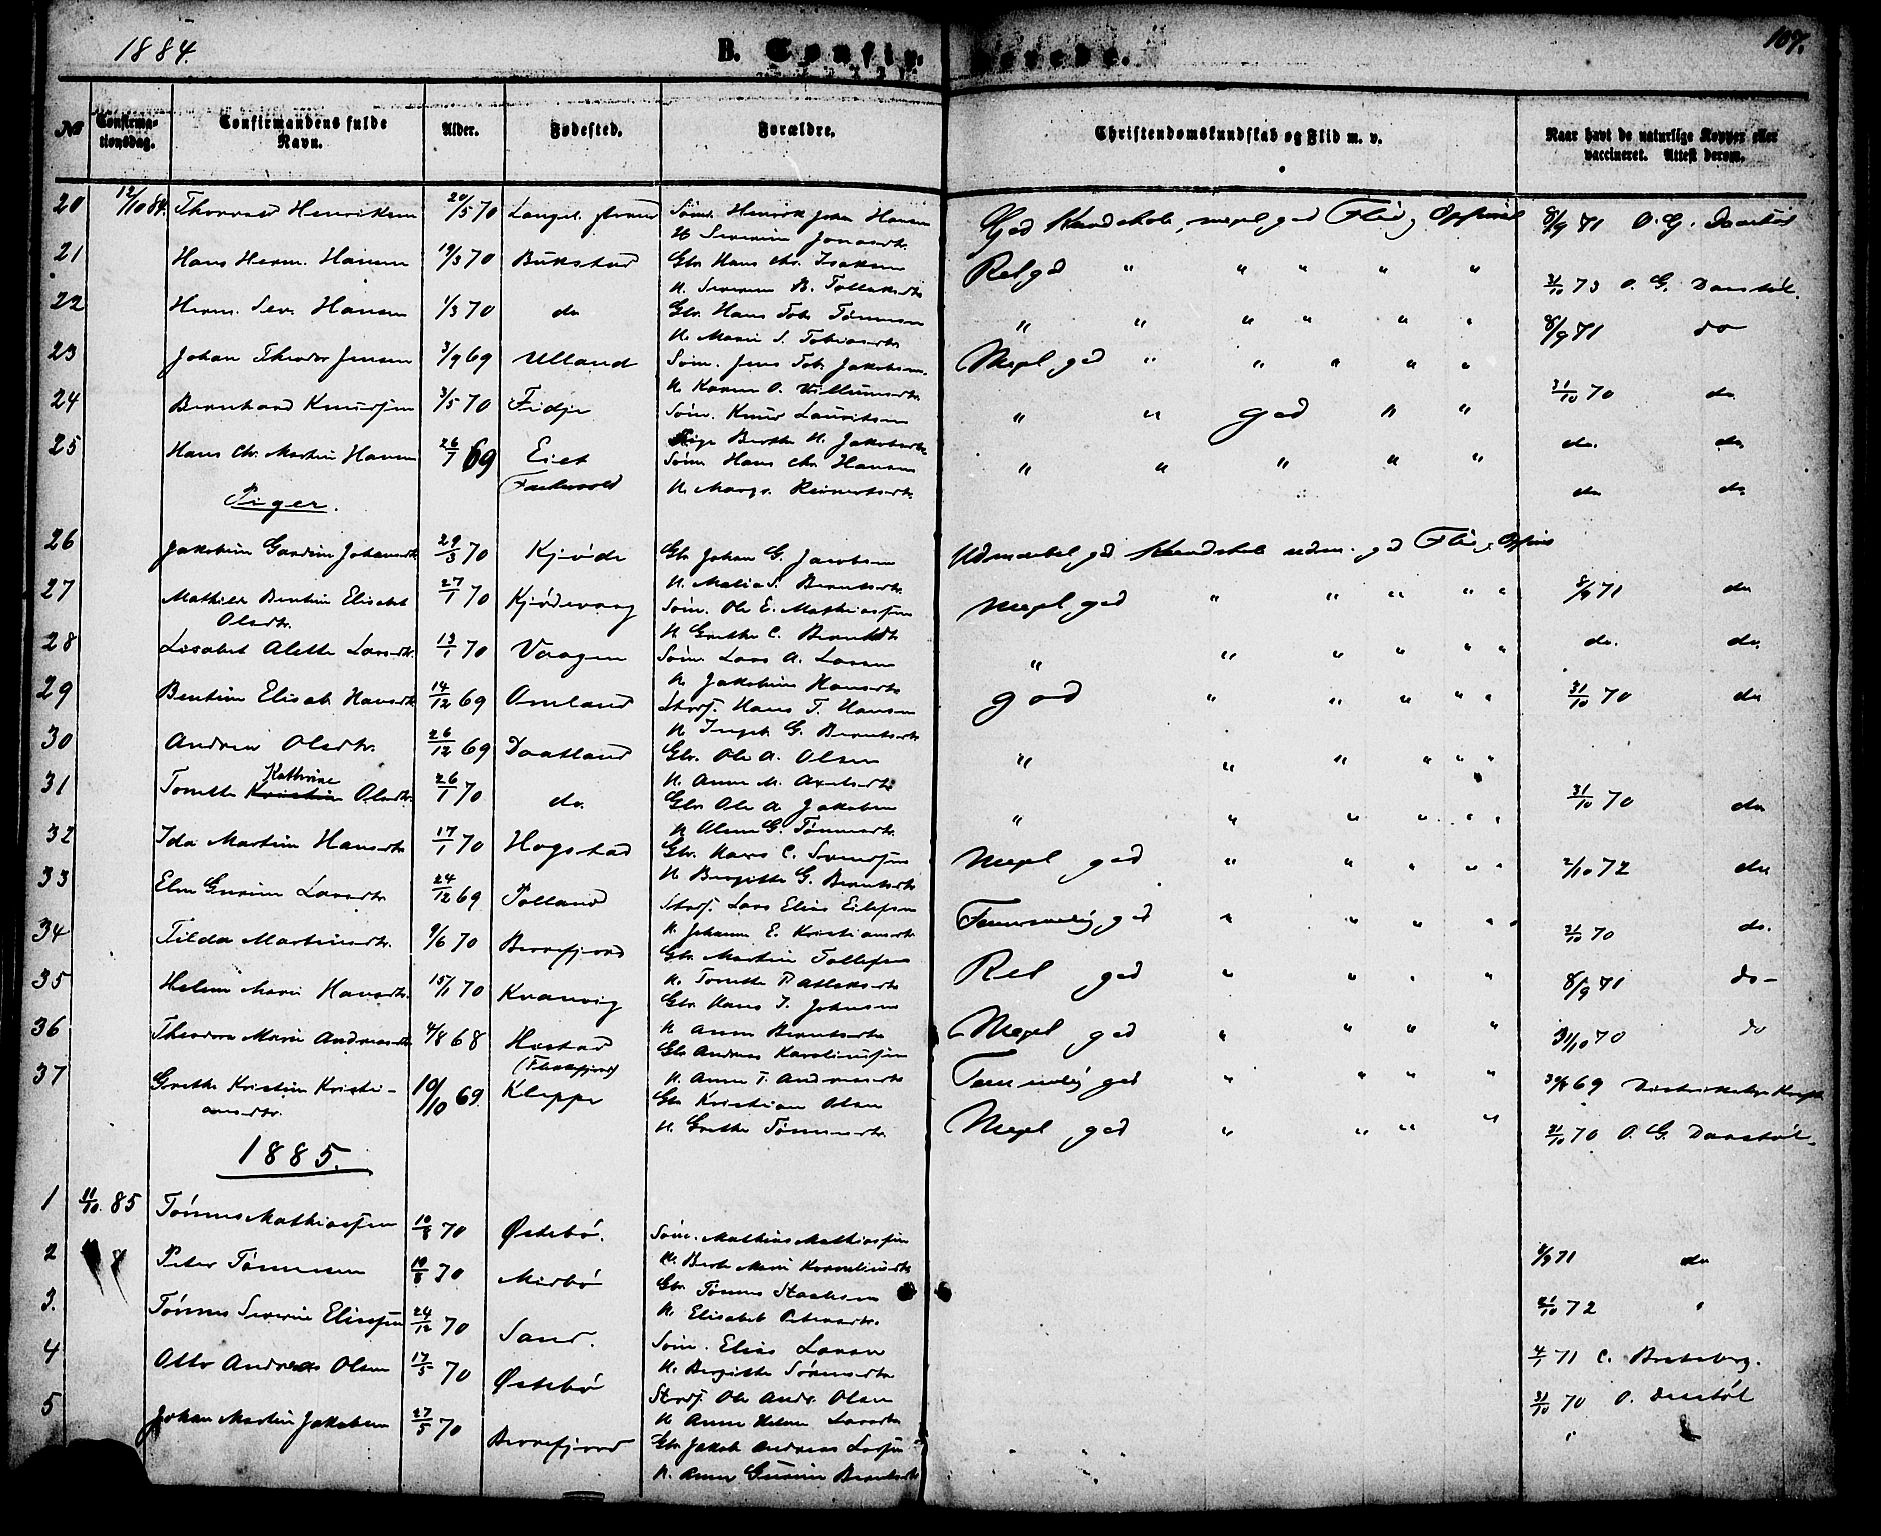 1884.
B. Confirmerede.
107.
No
Confirmationsdag.
Confirmandens fulde Navn.
Alder.
Fødested.
Forældre.
Christendomskundskab og Flid m. v.
Naar havt de naturlige Kopper eller vaccineret. Attest derom.
20 12/10 84. Henriksen 20/5 70 Søm. Henrik Johan Hansen God Kundskab, meget god Flid, Opførsel 8/9 71 O. G.
H Severine Jonasdtr.
21 Hans Herm. Hansen 19/3 70 Bukstad Gbr Hans Chr. Isaksen Rel god " " " " " 31/10 73 O. G. Danstøl.
H. Severine B. Tollaksdtr
22 Herm. Sev. Hansen 1/3 70 do Gbr. Hans Tob. Tønnesen " " " " " " 8/9 71 do
H. Marie S. Tobiasdtr
23 Johan Theodor Jensen 3/9 69 Ulland Søm. Jens Tob. Jakobsen Megt god " " " " " 31/10 70 do
H. Karen O. Villumsdtr
24 Bernhard Knudsen 3/5 70 Fidje Søm. Knud Lauritsen " " god " " do. do
Pige Berthe H. Jakobsdtr
25 Hans Chr. Martin Hansen 26/7 69 Eiet Søm Hans Chr Hansen " " " " " do do
H. Marg. Reinertsdtr.
Piger.
26 Jakobine Gurine Johansdtr 29/3 70 Kjøde Gbr Johan G. Jacobsen Udmærket god Kundskab udm. god Flid, Opførs 8/9 71 do
H. Malia S. Berntsdtr.
27 Mathilde Bentine Elisabet 27/1 70 Kjødevaag Søm. Ole E. Mathiassen Megt god " " " " " do. do.
Olsdtr.
H Grethe C. Berntsdtr
28 Lisabet Alette Larsdtr. 13/1 70 Vaagen Søm. Lars A. Larsen " " " " " " 31/10 70 do
H. Jakobine Hansdtr
29 Bentine Elisab. Hansdtr 14/12 69 Omland Hans T. Hansen god " " " " "
H Ingeb. G. Berntsdtr
30 Andrea Olsdtr. 26/12 69 Daatland Gbr. Ole A. Olsen " " " " " " 31/10 70 do
H. Anne M. Axelsdtr.
31 Tomette Kathrine Olsdtr. 26/1 70 do. Gbr Ole A. Jakobsen " " " " " "
H Olene G. Tønnesdtr.
32 Ida Martine Hansdtr 17/1 70 Hogstad Gbr. Hans C. Svendsen Megt god " " " " " 2/10 72 do
H Birgitte G. Berntsdtr
33 Elen Gurine Larsdtr. 24/12 69 Lars Elias Eilefsen god " " " " " 31/10 70 do.
H. Johanne E. Kristiansdtr
34 Tilda Martinsdtr. 9/6 70 Berrefjord Gbr Martin Tollefsen Rel god " " " " 8/9 71 do–
H. Tomette T.
35 Helene Marie Hansdtr. 15/1 70 Kvanvig Gbr. Hans J. Johnsen Megt god " " " " 31/10 70 do
H Anne Berntsdtr
36 Theodora Marie Andreasdtr 4/8 68 Hestad Gbr Andreas Karoliussen god " " " " 69
(Flekkefjord)
H. Anne T. Andreasdtr
37 Grethe Kristine Kristi- 10/10 69 Kleppe Gbr Kristian Olsen Megt god " " " " 31/10 70 O. G. Danstøl
ansdtr.
H. Grethe Tønnesdtr.
1885.
1 11/10. 85 Tønnes Mathiassen 10/8 70 Østebø. Søm. Mathias Mathiassen 8/9 71 do
H. Berte Marie Korneliusdtr
2 Peter Tønnesen 10/8 70 Midbø Gbr. Tønnes 31/10 72 "
H. Elisabet Petersdtr.
3. Tønnes Severin Eliassen 24/12 70 Sand. Søm. Elias Larsen 4/1 71 C.
H. Birgitte Sørensdtr
4 Otto Andreas Olsen 17/5 70 Østebø Ole Andr. Olsen 31/10 70 O. Danstøl
H Anne Helene Larsdtr
5 Johan Martin Jakobsen 27/5 70 Berrefjord Gbr Jakob Andreas Larsen "
H. Anne Gurine Berntsdtr